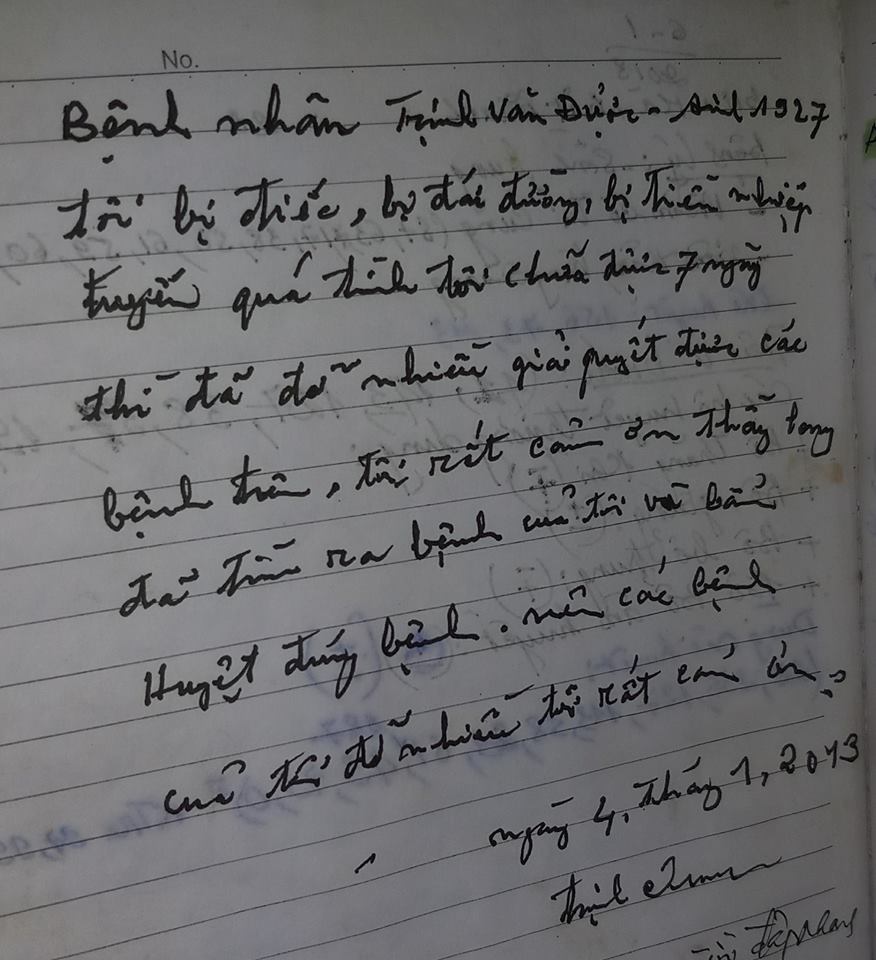 No.
Bệnh nhân Trịnh Văn Được - sinh 1927
tôi bị điếc, bị đái đường, bị thiên nhiếp
truyến quá trình tôi chữa được 7 ngày
thì đã đỡ nhiều giải quyết được các
bệnh trên, tôi rất cảm ơn thầy long
đã tìm ra bệnh của tôi và bấm
Huyệt đúng bệnh. nên các bệnh
của tôi đỡ nhiều tôi rất cảm ơn
ngày 4, tháng 1, 2013
trịnh